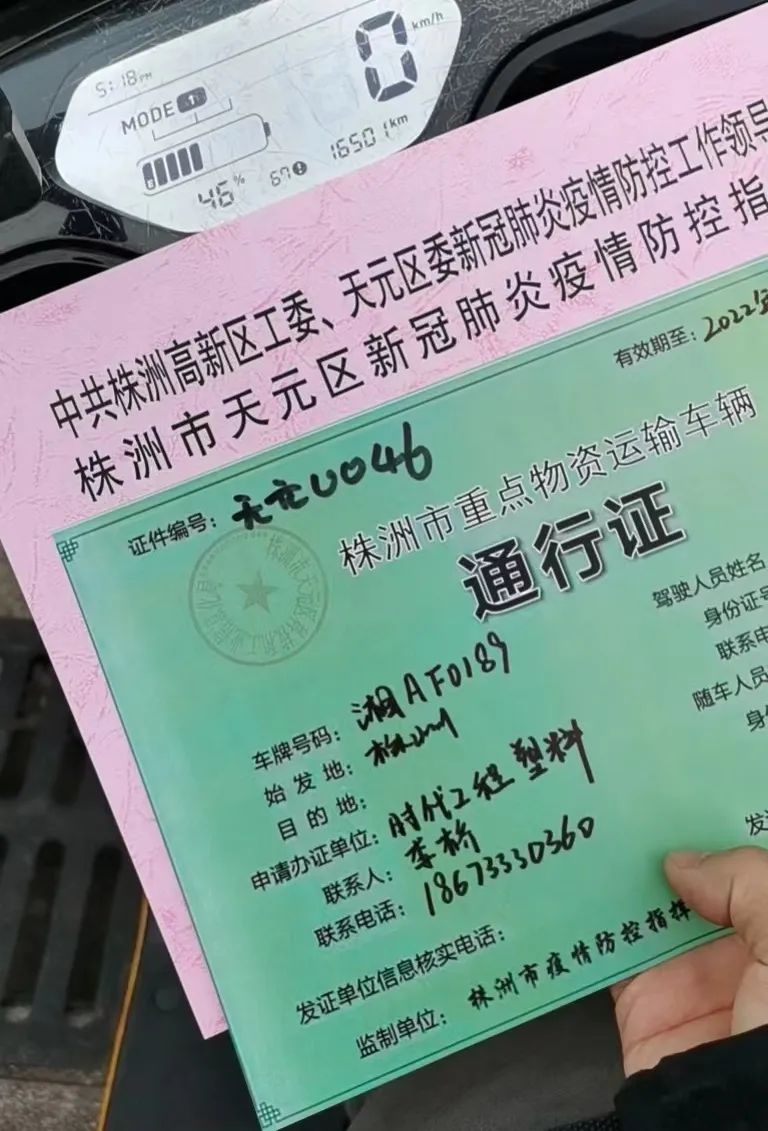 5:18PM
MODE 1
0 km/h
46%
16501km
中共株洲高新区工委、天元区委新冠肺炎疫情防控工作领导
株洲市天元区新冠肺炎疫情防控指
有效期至：2022年
证件编号：天元0046
株洲市重点物资运输车辆
通行证
驾驶人员姓名
身份证号
联系电
随车人员
身份
车牌号码：湘AF0189
始发地：株洲
目的地：
申请办证单位：时代工程塑料
联系人：李桥
联系电话：18673330360
发证
发证单位信息核实电话：
监制单位：株洲市疫情防控指挥